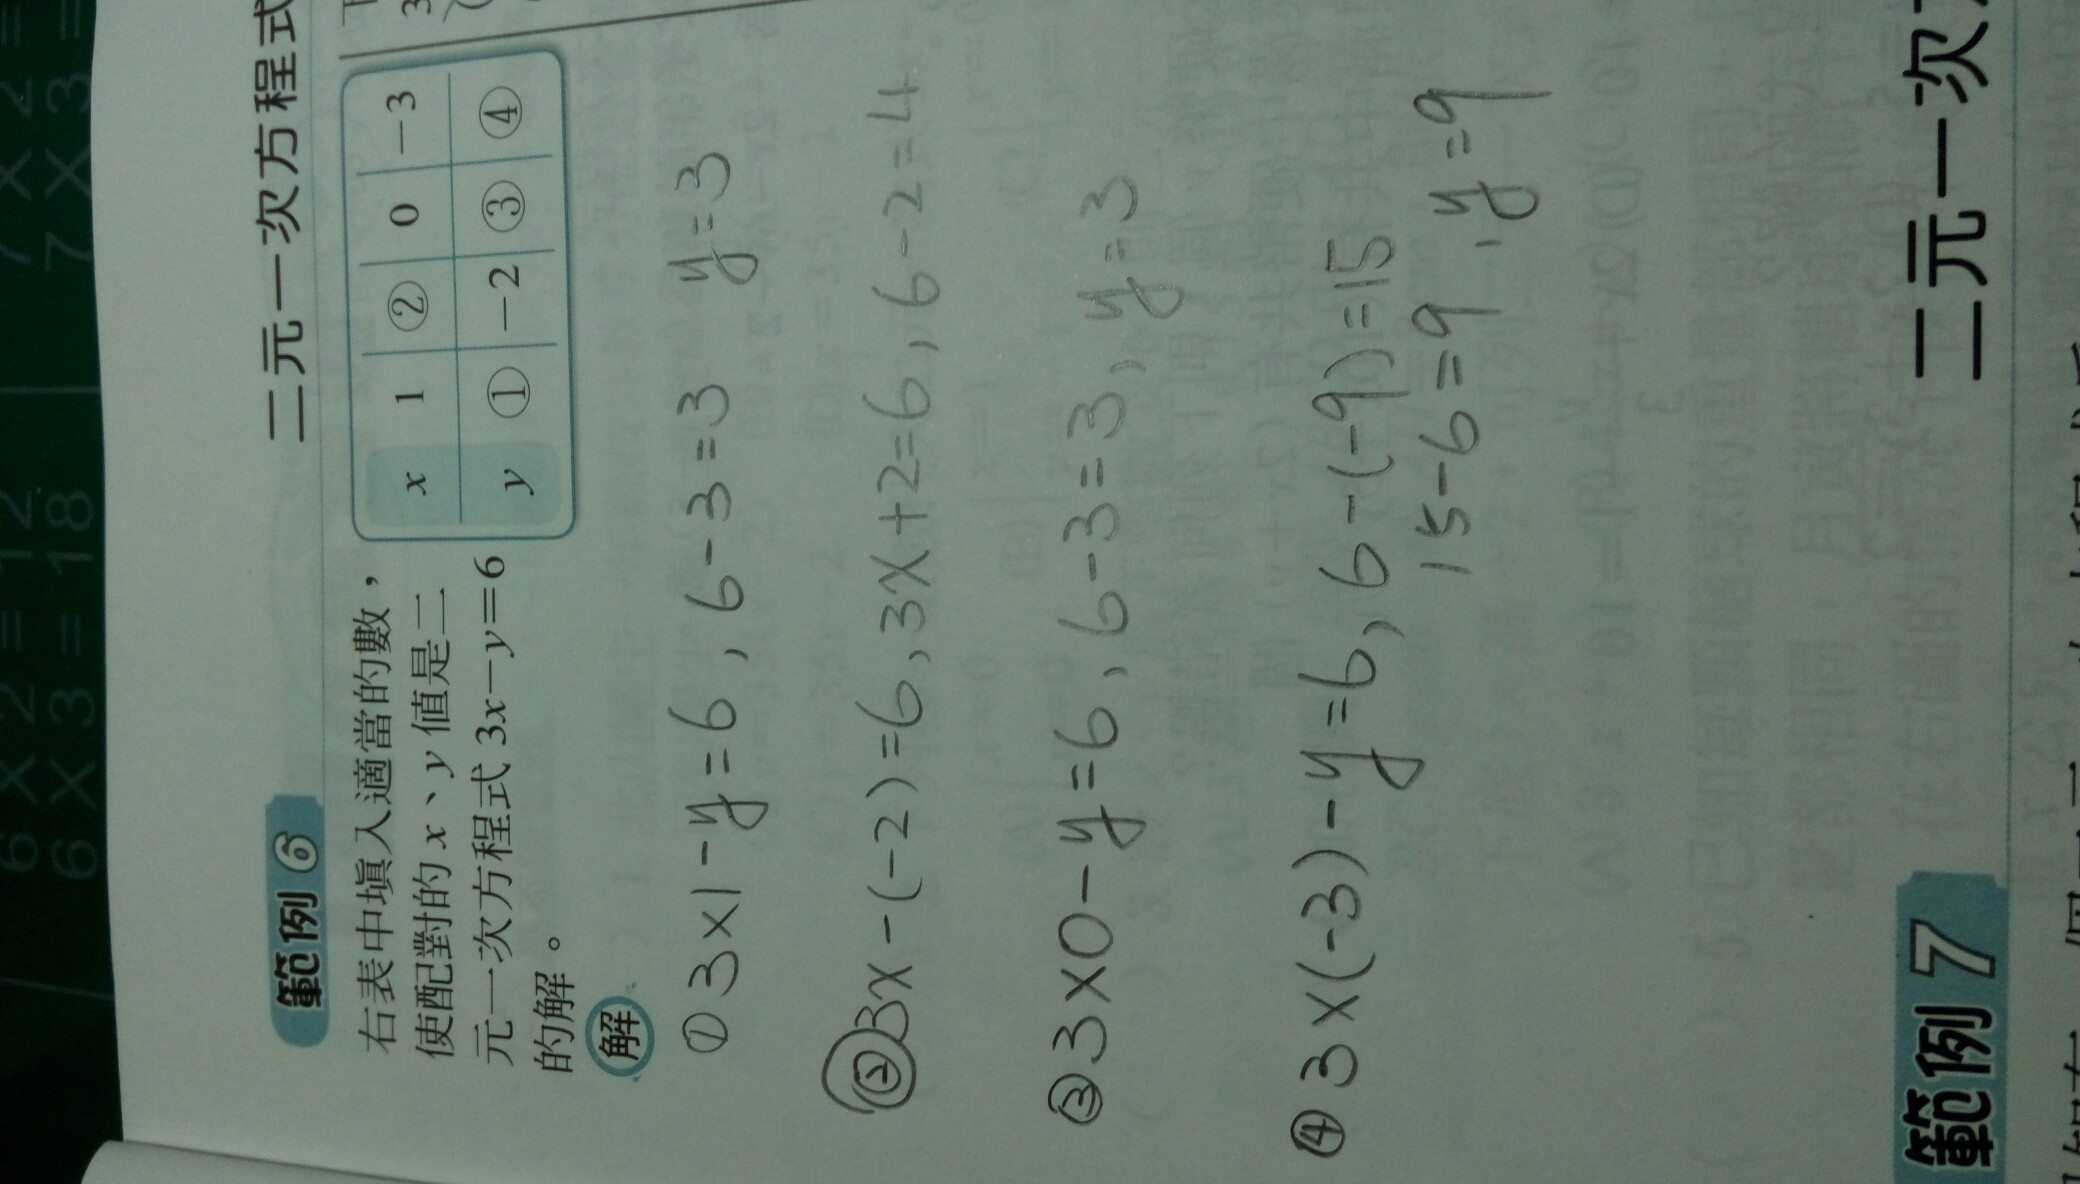 6 × 2 = 12
7 × 2 =
6 × 3 = 18
7 × 3 =
二元一次方程式
範例 6
右表中填入適當的數，
使配對的 x、y 值是二
元一次方程式 3x－y＝6
的解。
x 1 ② 0 －3
y ① －2 ③ ④
解
① 3×1-y=6, 6-3=3 y=3
② 3x-(-2)=6, 3x+2=6, 6-2=4
③ 3×0-y=6, 6-3=3, y=3
④ 3×(-3)-y=6, 6-(-9)=15
15-6=9, y=9
範例 7
二元一次